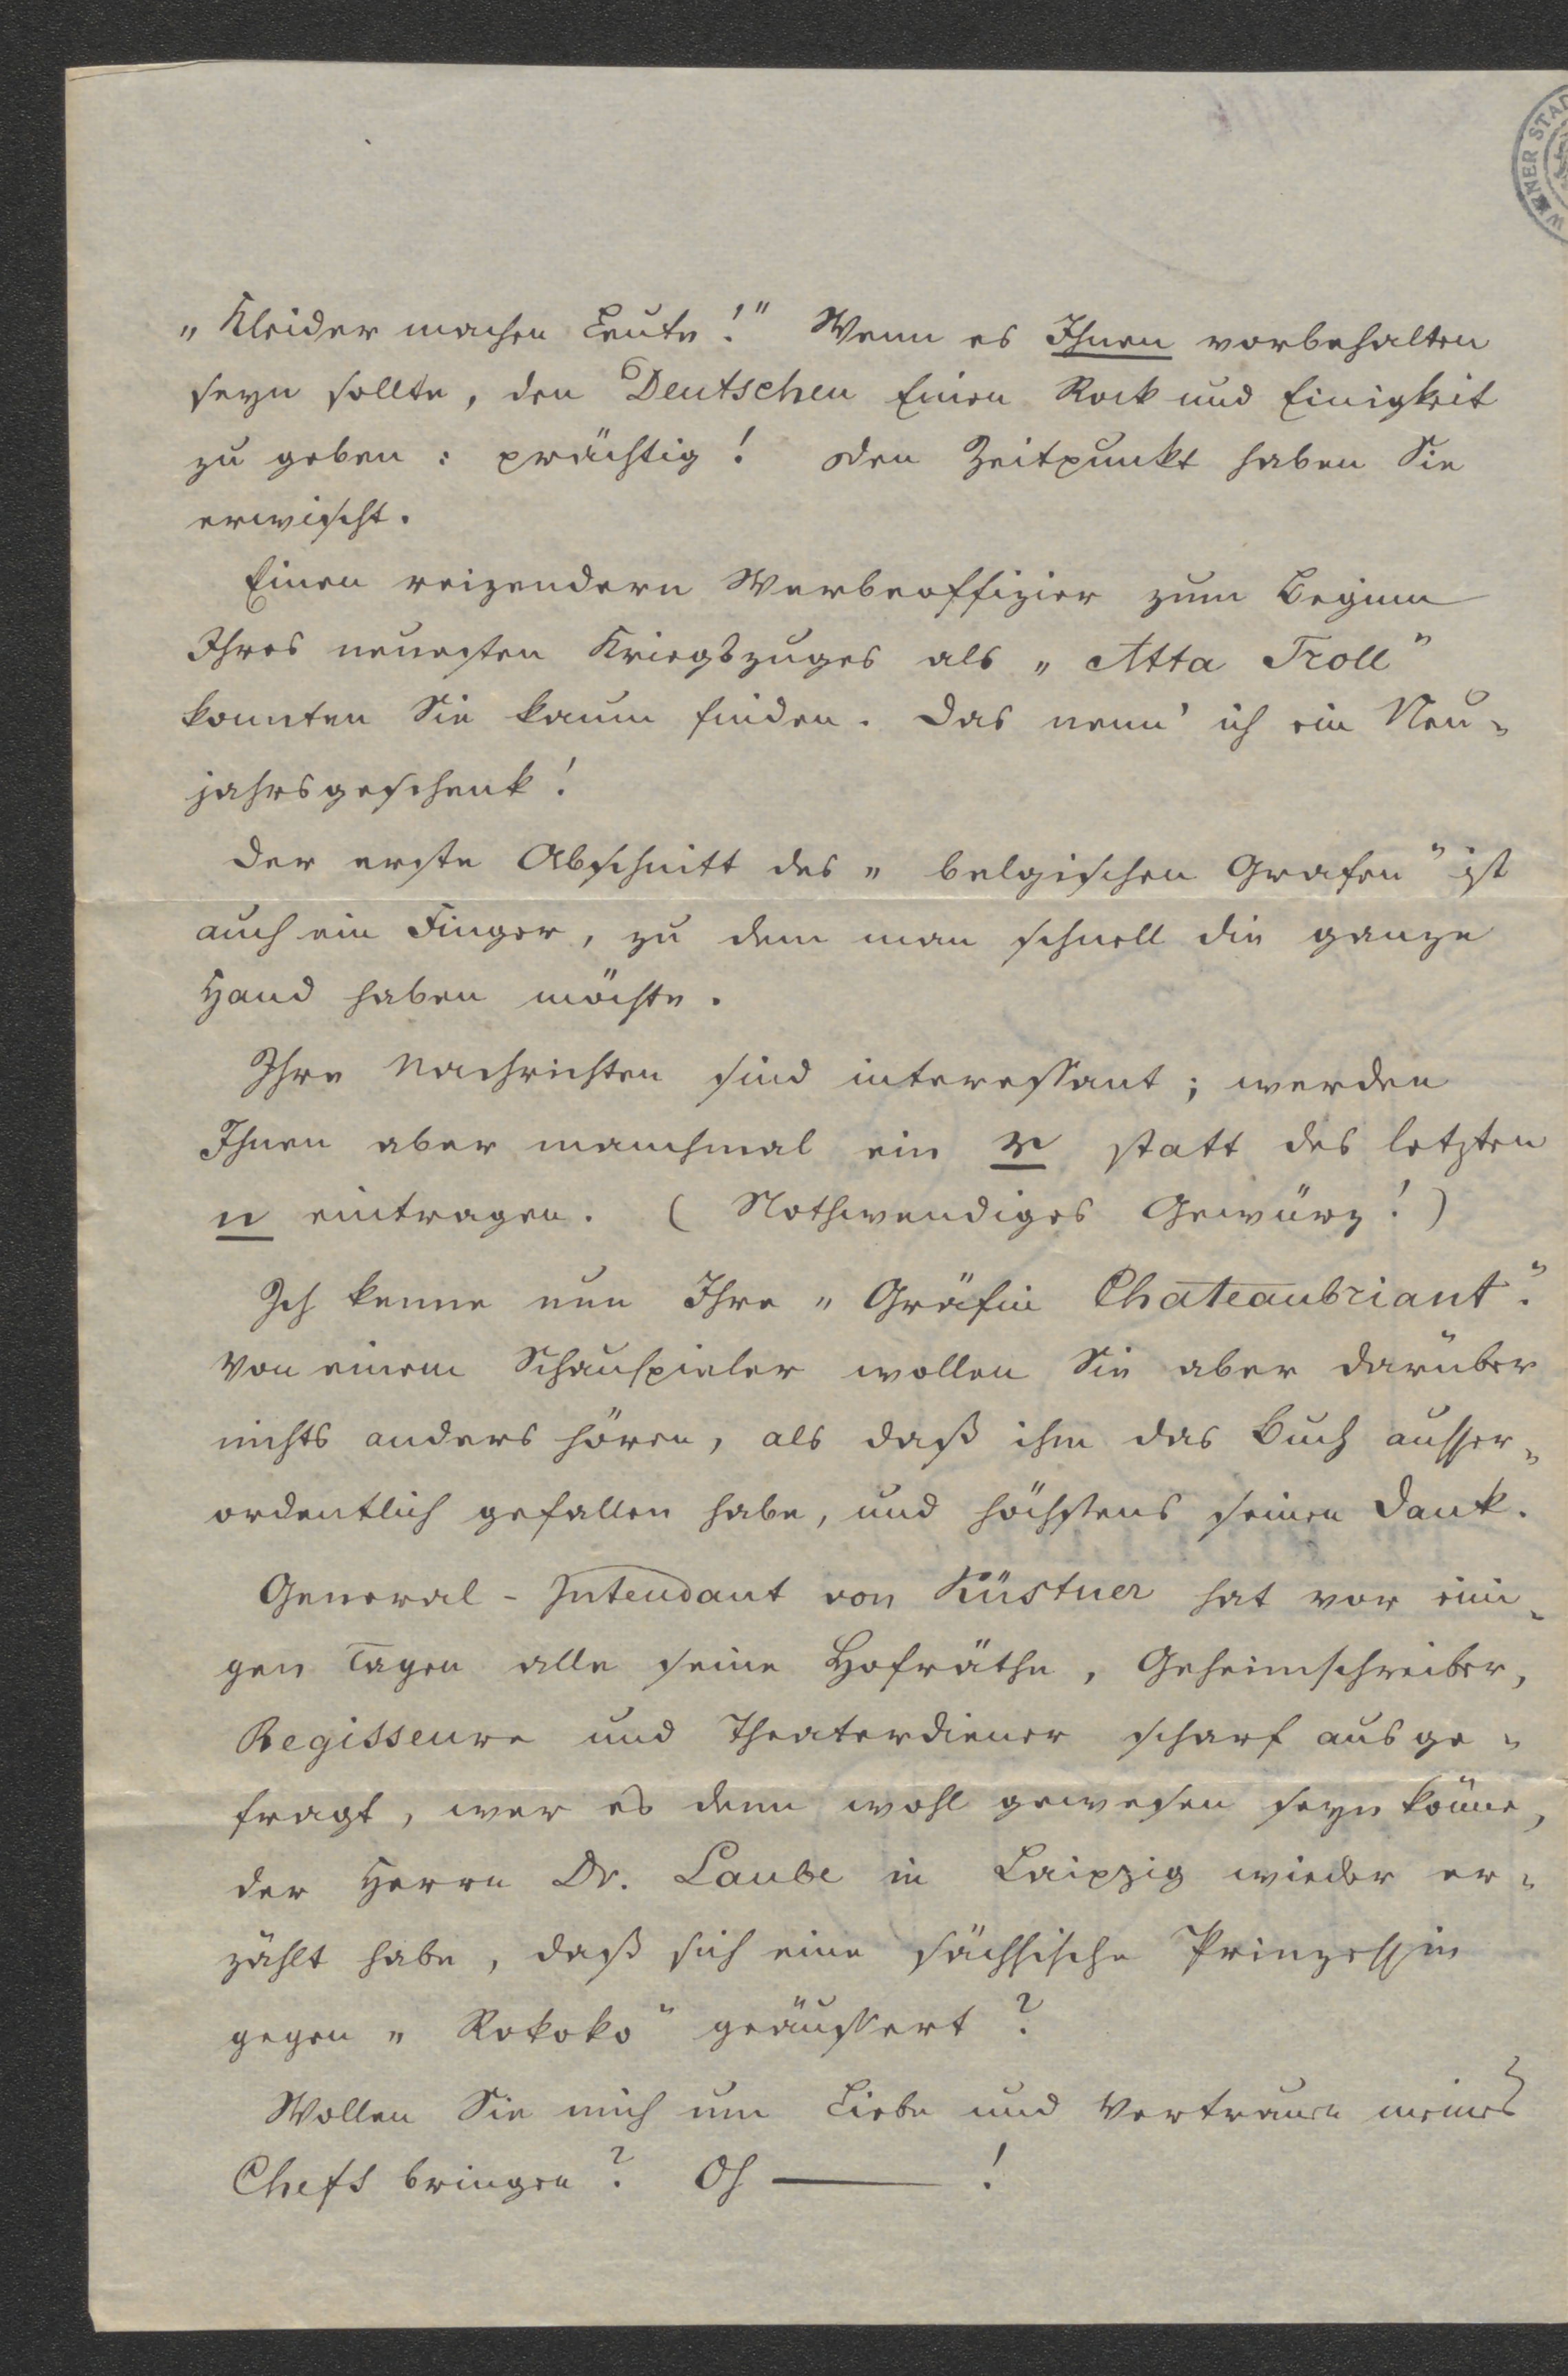 WIENER STAD
„Kleider machen Leute!" Wenn es Ihnen vorbehalten
seyn sollte, den Deutschen Einen Rock und Einigkeit
zu geben: prächtig! Den Zeitpunkt haben Sie
erwischt.
Einen reizendern Werbeoffizier zum Beginn
Ihres neuesten Kriegszuges als „Atta Troll"
konnten Sie kaum finden. Das nenn' ich ein Neu-
jahrsgeschenk!
Der erste Abschnitt des „belgischen Grafen" ist
auch ein Finger, zu dem man schnell die ganze
Hand haben möchte.
Ihre Nachrichten sind interessant; werden
Ihnen aber manchmal ein r statt des letzten
n eintragen. (Nothwendiges Gewürz!)
Ich kenne nun Ihre „Gräfin Chateaubriant".
Von einem Schauspieler wollen Sie aber darüber
nichts anders hören, als daß ihm das Buch ausser-
ordentlich gefallen habe, und höchstens seinen Dank.
General-Intendant von Küstner hat vor eini-
gen Tagen alle seine Hofräthe, Geheimschreiber,
Regisseure und Theaterdiener scharf ausge-
fragt, wer es denn wohl gewesen seyn könne,
der Herrn Dr. Laube in Leipzig wieder er-
zählt habe, daß sich eine sächsische Prinzessin
gegen „Rokoko" geäussert?
Wollen Sie mich um Liebe und Vertrauen meines
Chefs bringen? Oh —!